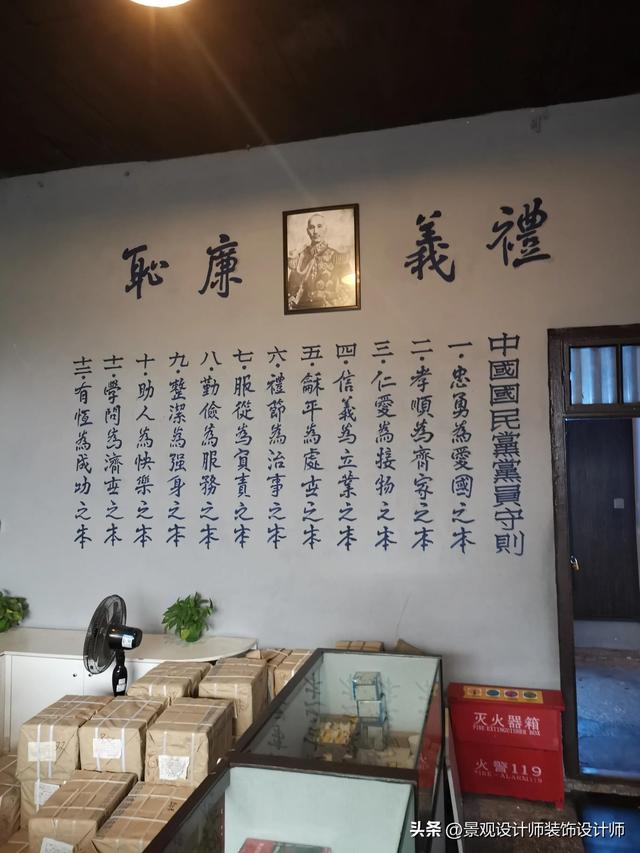 禮義廉恥
中國國民黨黨員守則
一·忠勇為愛國之本
二·孝順為齊家之本
三·仁愛為接物之本
四·信義為立業之本
五·龢平為處世之本
六·禮節為治事之本
七·服從為負責之本
八·勤儉為服務之本
九·整潔為强身之本
十·助人為快樂之本
十一·學問為濟世之本
十二·有恆為成功之本
灭火器箱
FIRE EXTINGUISHER BOX
火警119
FIRE-ALARM119
头条 @景观设计师装饰设计师